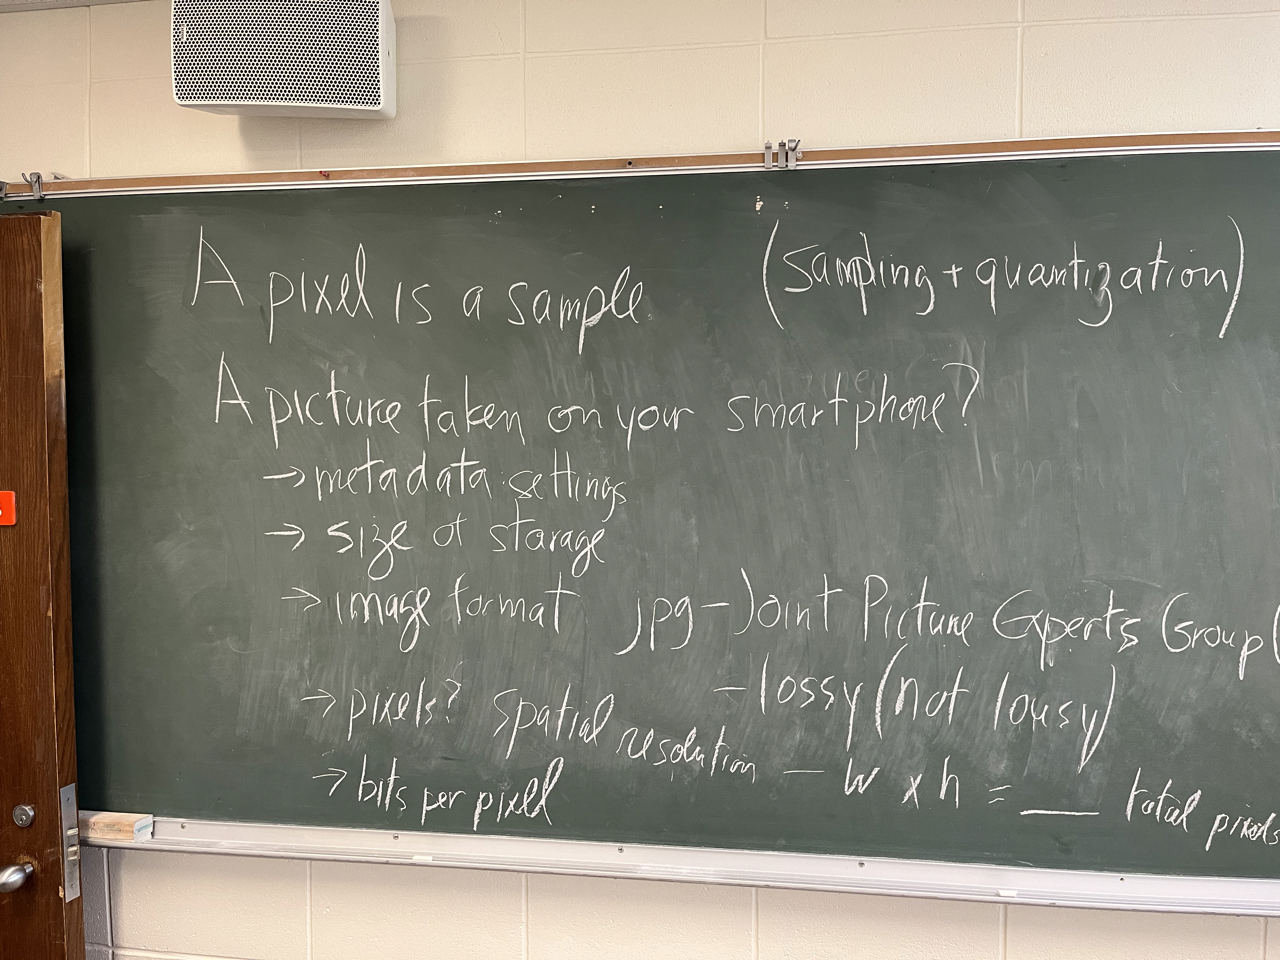 A pixel is a sample (sampling + quantization)
A picture taken on your smartphone?
→ metadata settings
→ size of storage
→ image format jpg - Joint Picture Experts Group (
- lossy (not lousy)
→ pixels? spatial resolution - w x h = ___ total pixels
→ bits per pixel